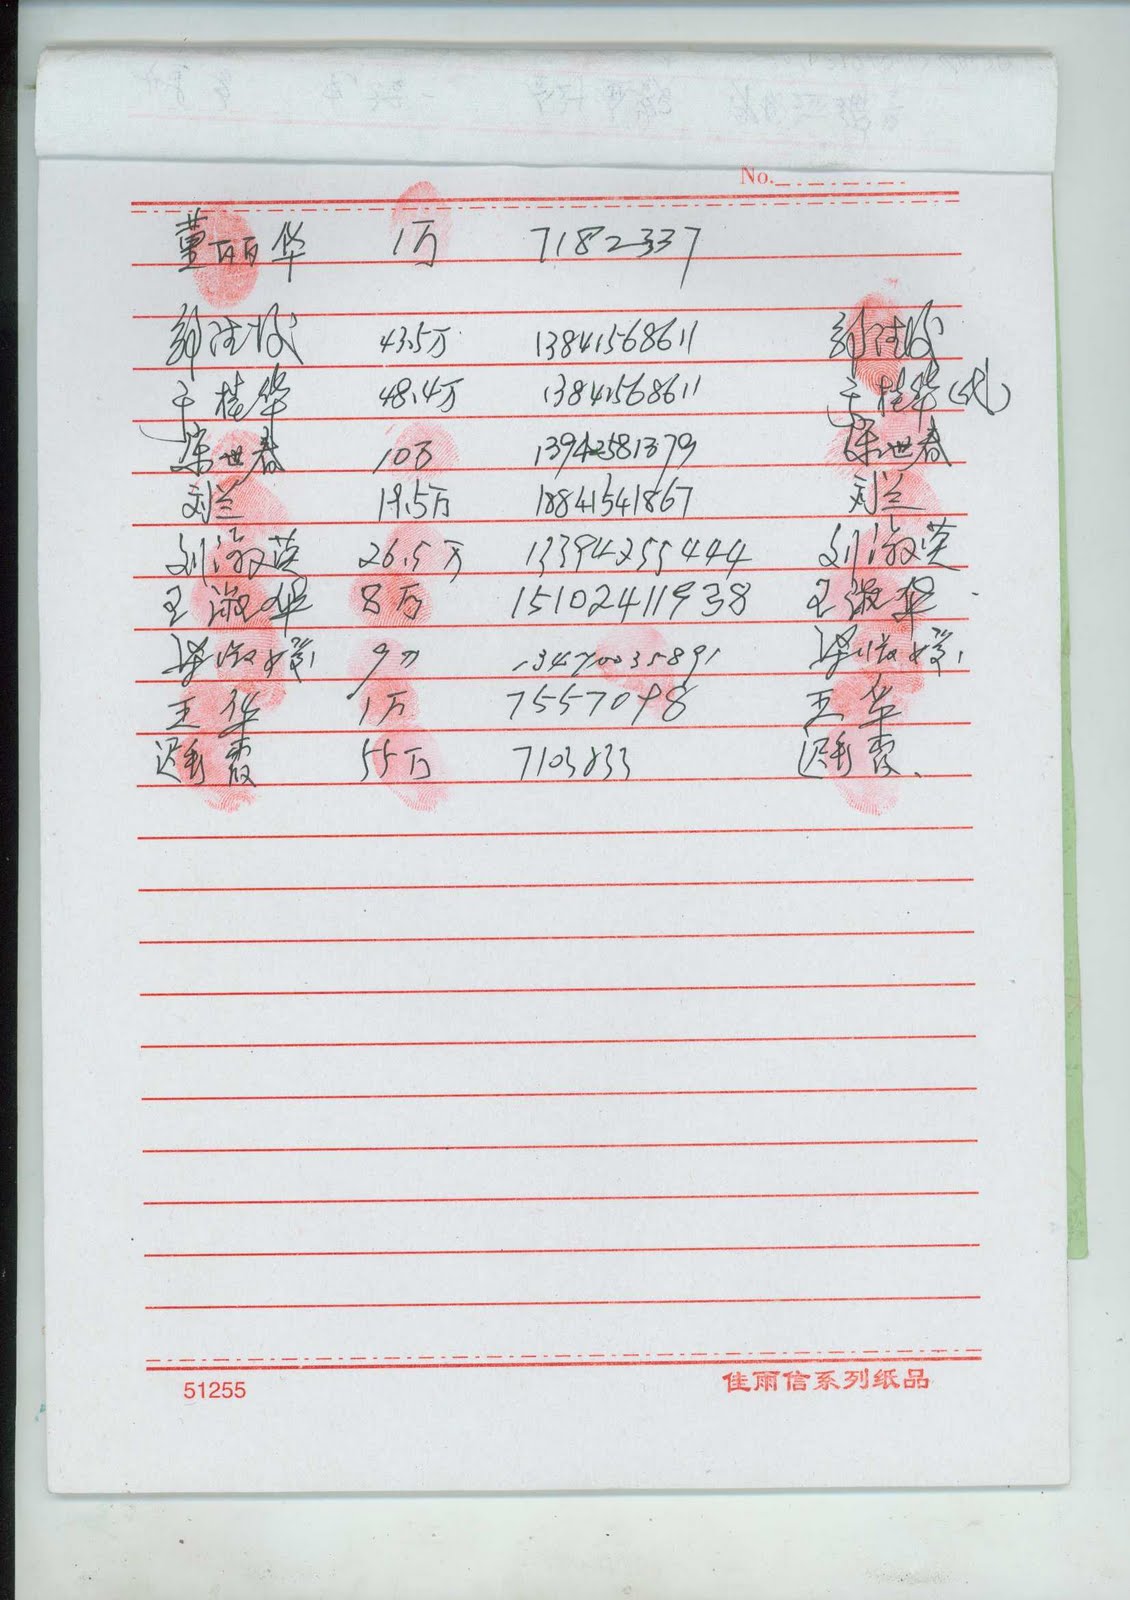 No.
董丽华 1万 7182337
43.5万 13841568611
于桂华 48.4万 13841568611 于桂华(代)
宋世春 10万 13942581379 宋世春
刘兰 19.5万 18841541867 刘兰
刘淑英 26.5万 13394255444 刘淑英
王淑华 8万 15102411938 王淑华
9万 13470035891
王华 1万 7557098 王华
迟秀霞 55万 7103833 迟秀霞
51255 佳雨信系列纸品